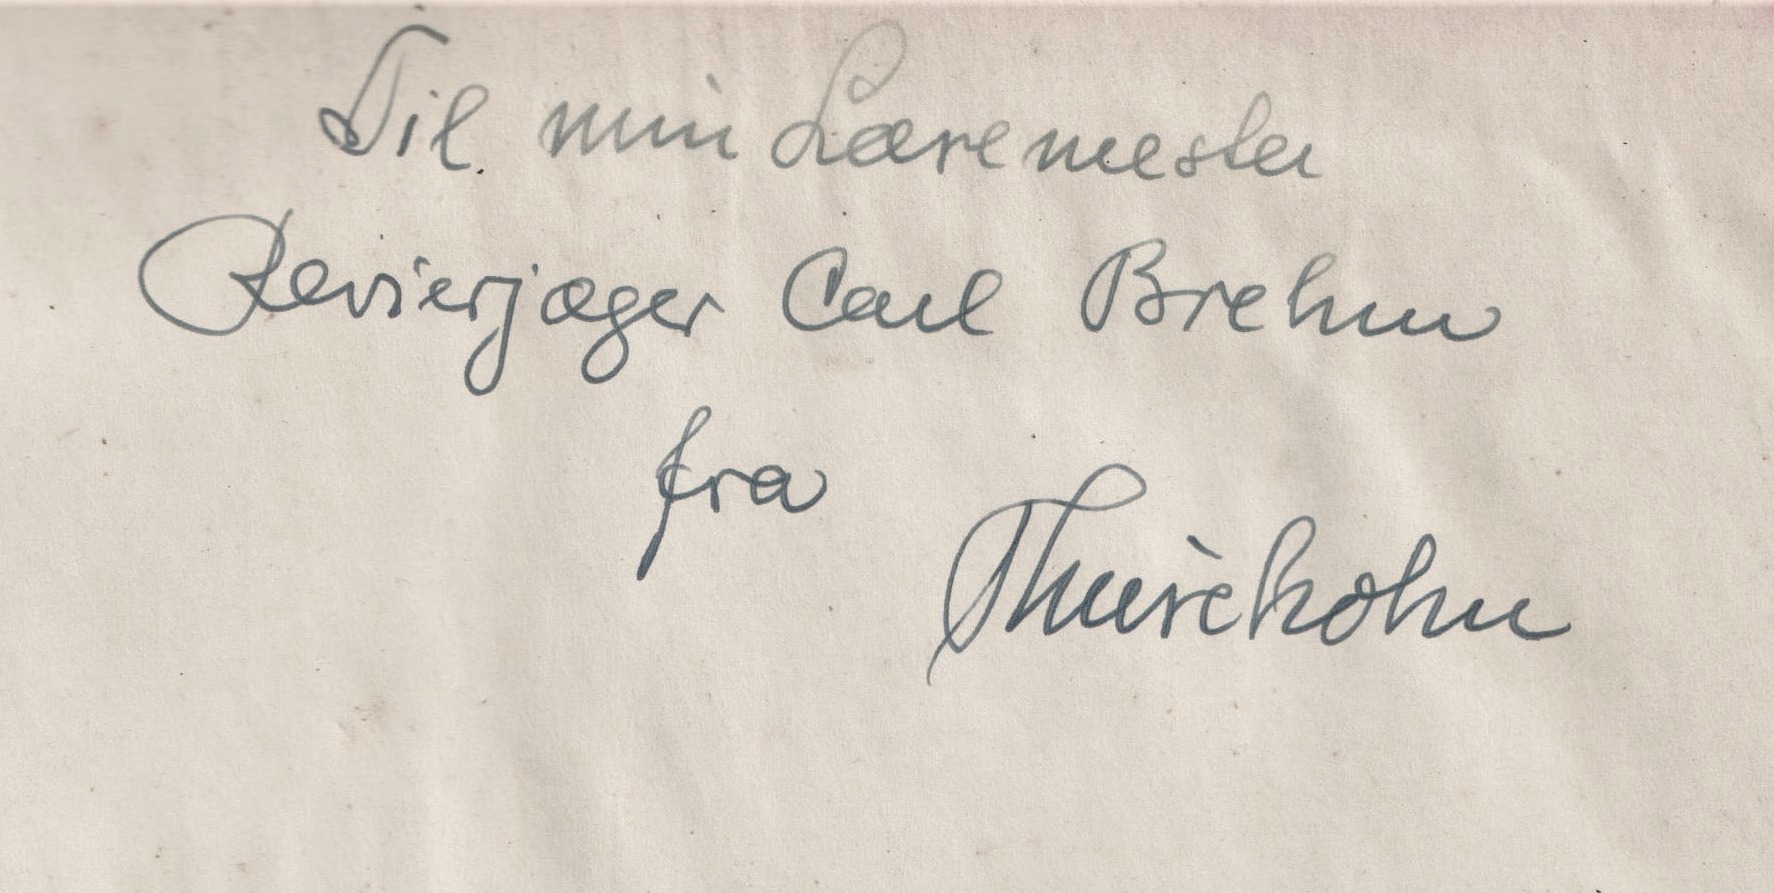 Til min Læremester
Revierjæger Carl Brehm
fra